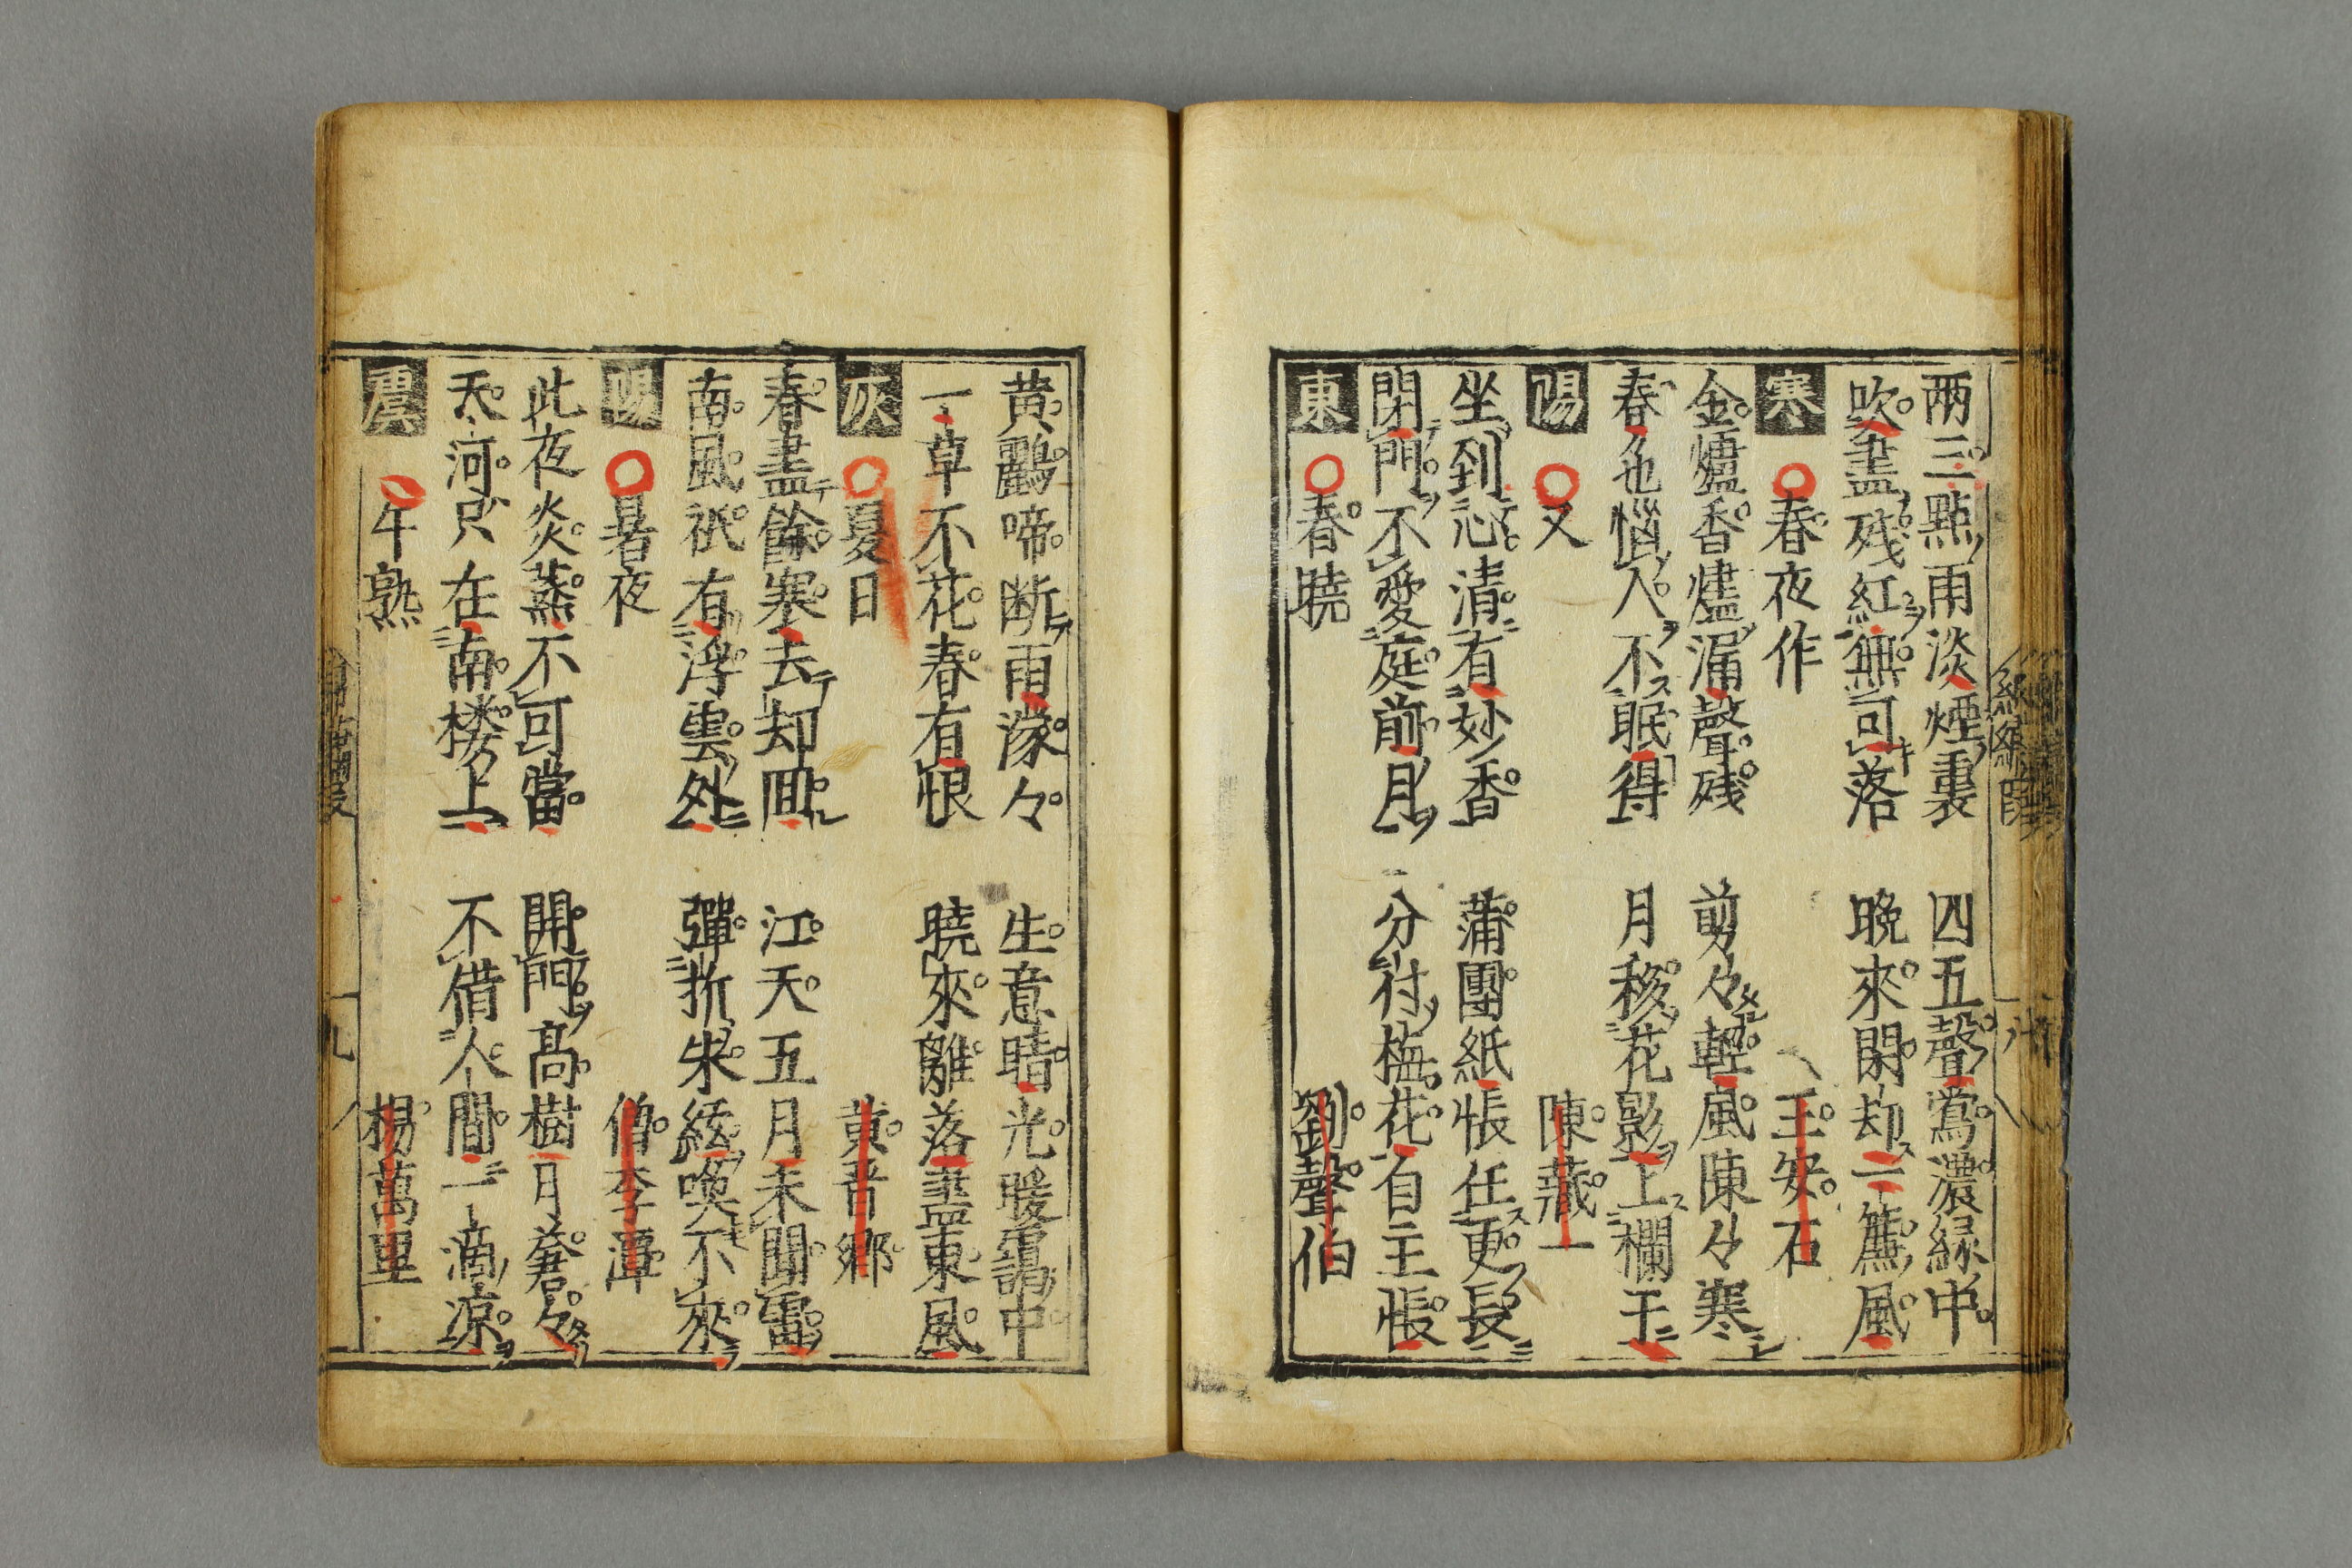 两三點雨淡煙裏　四五聲鶯濃緑中
吹盡残紅無可落　晚來閑却一簾風
寒　春夜作　王安石
金爐香燼漏聲残　剪々輕風陳々寒
春色惱人不眠得　月移花影上欄干
陽　又　陳藏一
坐到心清有妙香　蒲團紙帳任更長
閉門不愛庭前月　分付梅花自主張
東　春曉　劉聲伯
黄鸝啼断雨濛々　生意晴光暖靄中
一草不花春有恨　曉來離落盡東風
灰　夏日　黄晋郷
春盡餘寒去却回　江天五月未聞雷
南風祇有浮雲外　彈折朱絃喚不來
陽　暑夜　僧季潭
此夜炎蒸不可當　開門高樹月蒼々
天河只在南楼上　不借人間一滴凉
震　午熟　楊萬里
九